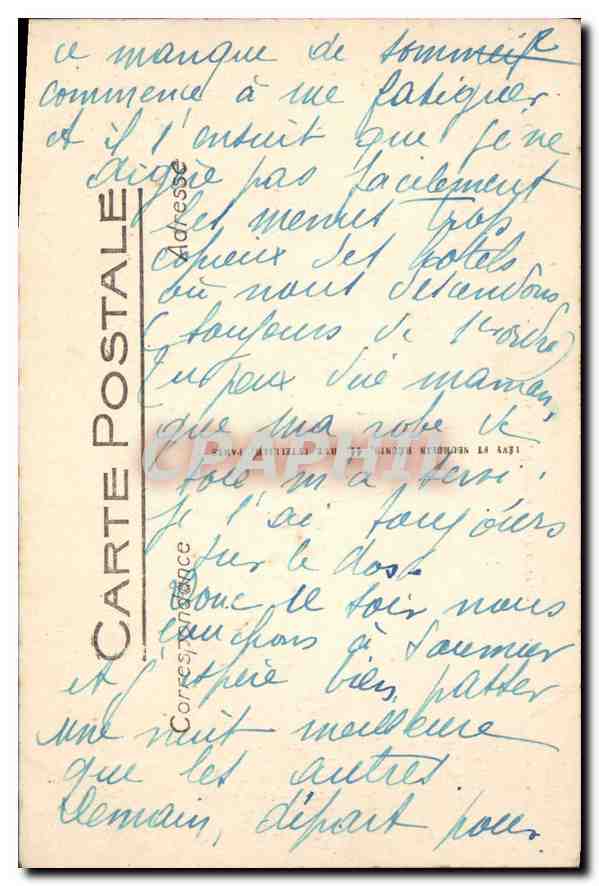 ce manque de sommeil
commence à me fatiguer.
et il s'ensuit que je ne
digère pas facilement
les menus trop
copieux des hotels
où nous descendons
(toujours de 1er ordre)
Tu peux dire maman,
que ma robe de
toile m'a servi!
je l'ai toujours
sur le dos.
Donc ce soir nous
couchons à Saumur
et j'espère bien passer
une nuit meilleure
que les autres.
Demain, départ pour
CARTE POSTALE
Correspondance
Adresse
LÉVY ET NEURDEIN RÉUNIS, 44, RUE LETELLIER, PARIS
CPAPHIL